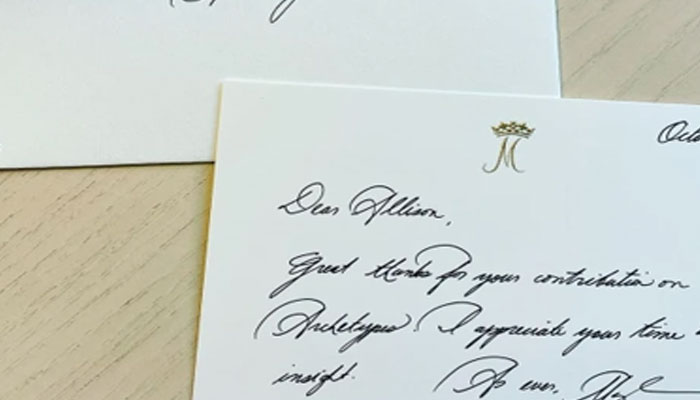 M
Octo
Dear Allison,
Great thanks for your contribution on
Archetypes! I appreciate your time
insight. As ever,